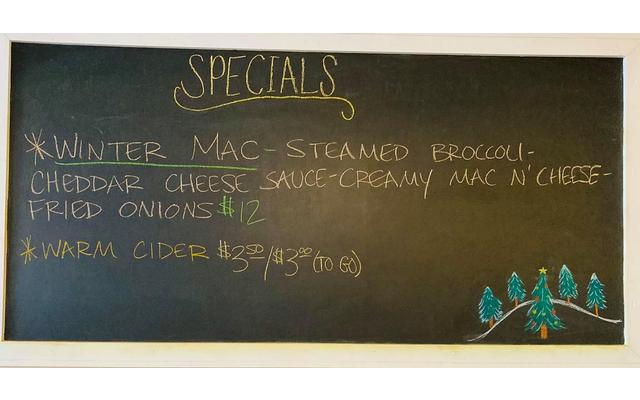 SPECIALS
*WINTER MAC-STEAMED BROCCOLI-
CHEDDAR CHEESE SAUCE-CREAMY MAC N' CHEESE-
FRIED ONIONS $12
*WARM CIDER $3.50/$3.00 (TO GO)